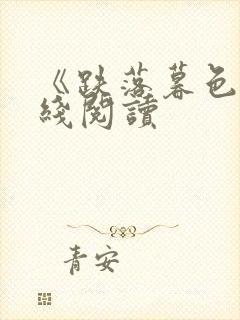 《跌落暮色
綫閱讀
青安